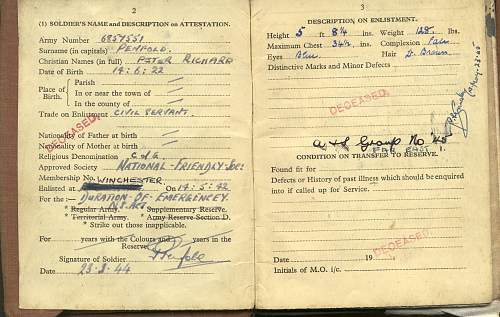 2
(1) SOLDIER'S NAME and DESCRIPTION on ATTESTATION.
Army Number 6857551
Surname (in capitals) PENFOLD.
Christian Names (in full) PETER RICHARD
Date of Birth 14:6:22
Place of Birth.
Parish
In or near the town of
In the county of
Trade on Enlistment CIVIL SERVANT.
DECEASED.
Nationality of Father at birth
Nationality of Mother at birth
Religious Denomination C of E.
Approved Society NATIONAL-FRIENDLY SOC:
Membership No.
Enlisted at WINCHESTER. On 14:5:42
For the :— DURATION OF EMERGENCY.
* Regular Army. * Supplementary Reserve.
* Territorial Army. * Army Reserve Section D.
* Strike out those inapplicable.
For years with the Colours and years in the
Reserve.
Signature of Soldier
Date 23.3.44
3
DESCRIPTION ON ENLISTMENT.
Height 5 ft 8¼ ins. Weight 128 lbs.
Maximum Chest 34½ ins. Complexion Pale
Eyes Blue Hair D. Brown
Distinctive Marks and Minor Defects
DECEASED.
A & S Group No 45
CONDITION ON TRANSFER TO RESERVE.
Found fit for
Defects or History of past illness which should be enquired
into if called up for Service.
DECEASED
Date 19
Initials of M.O. i/c.